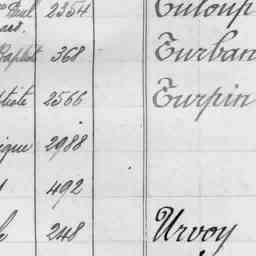 Paul 2354 Tuloup
Baptist 368 Turban
tiste 2566 Turpin
ique 2988
492
248 Urvoy